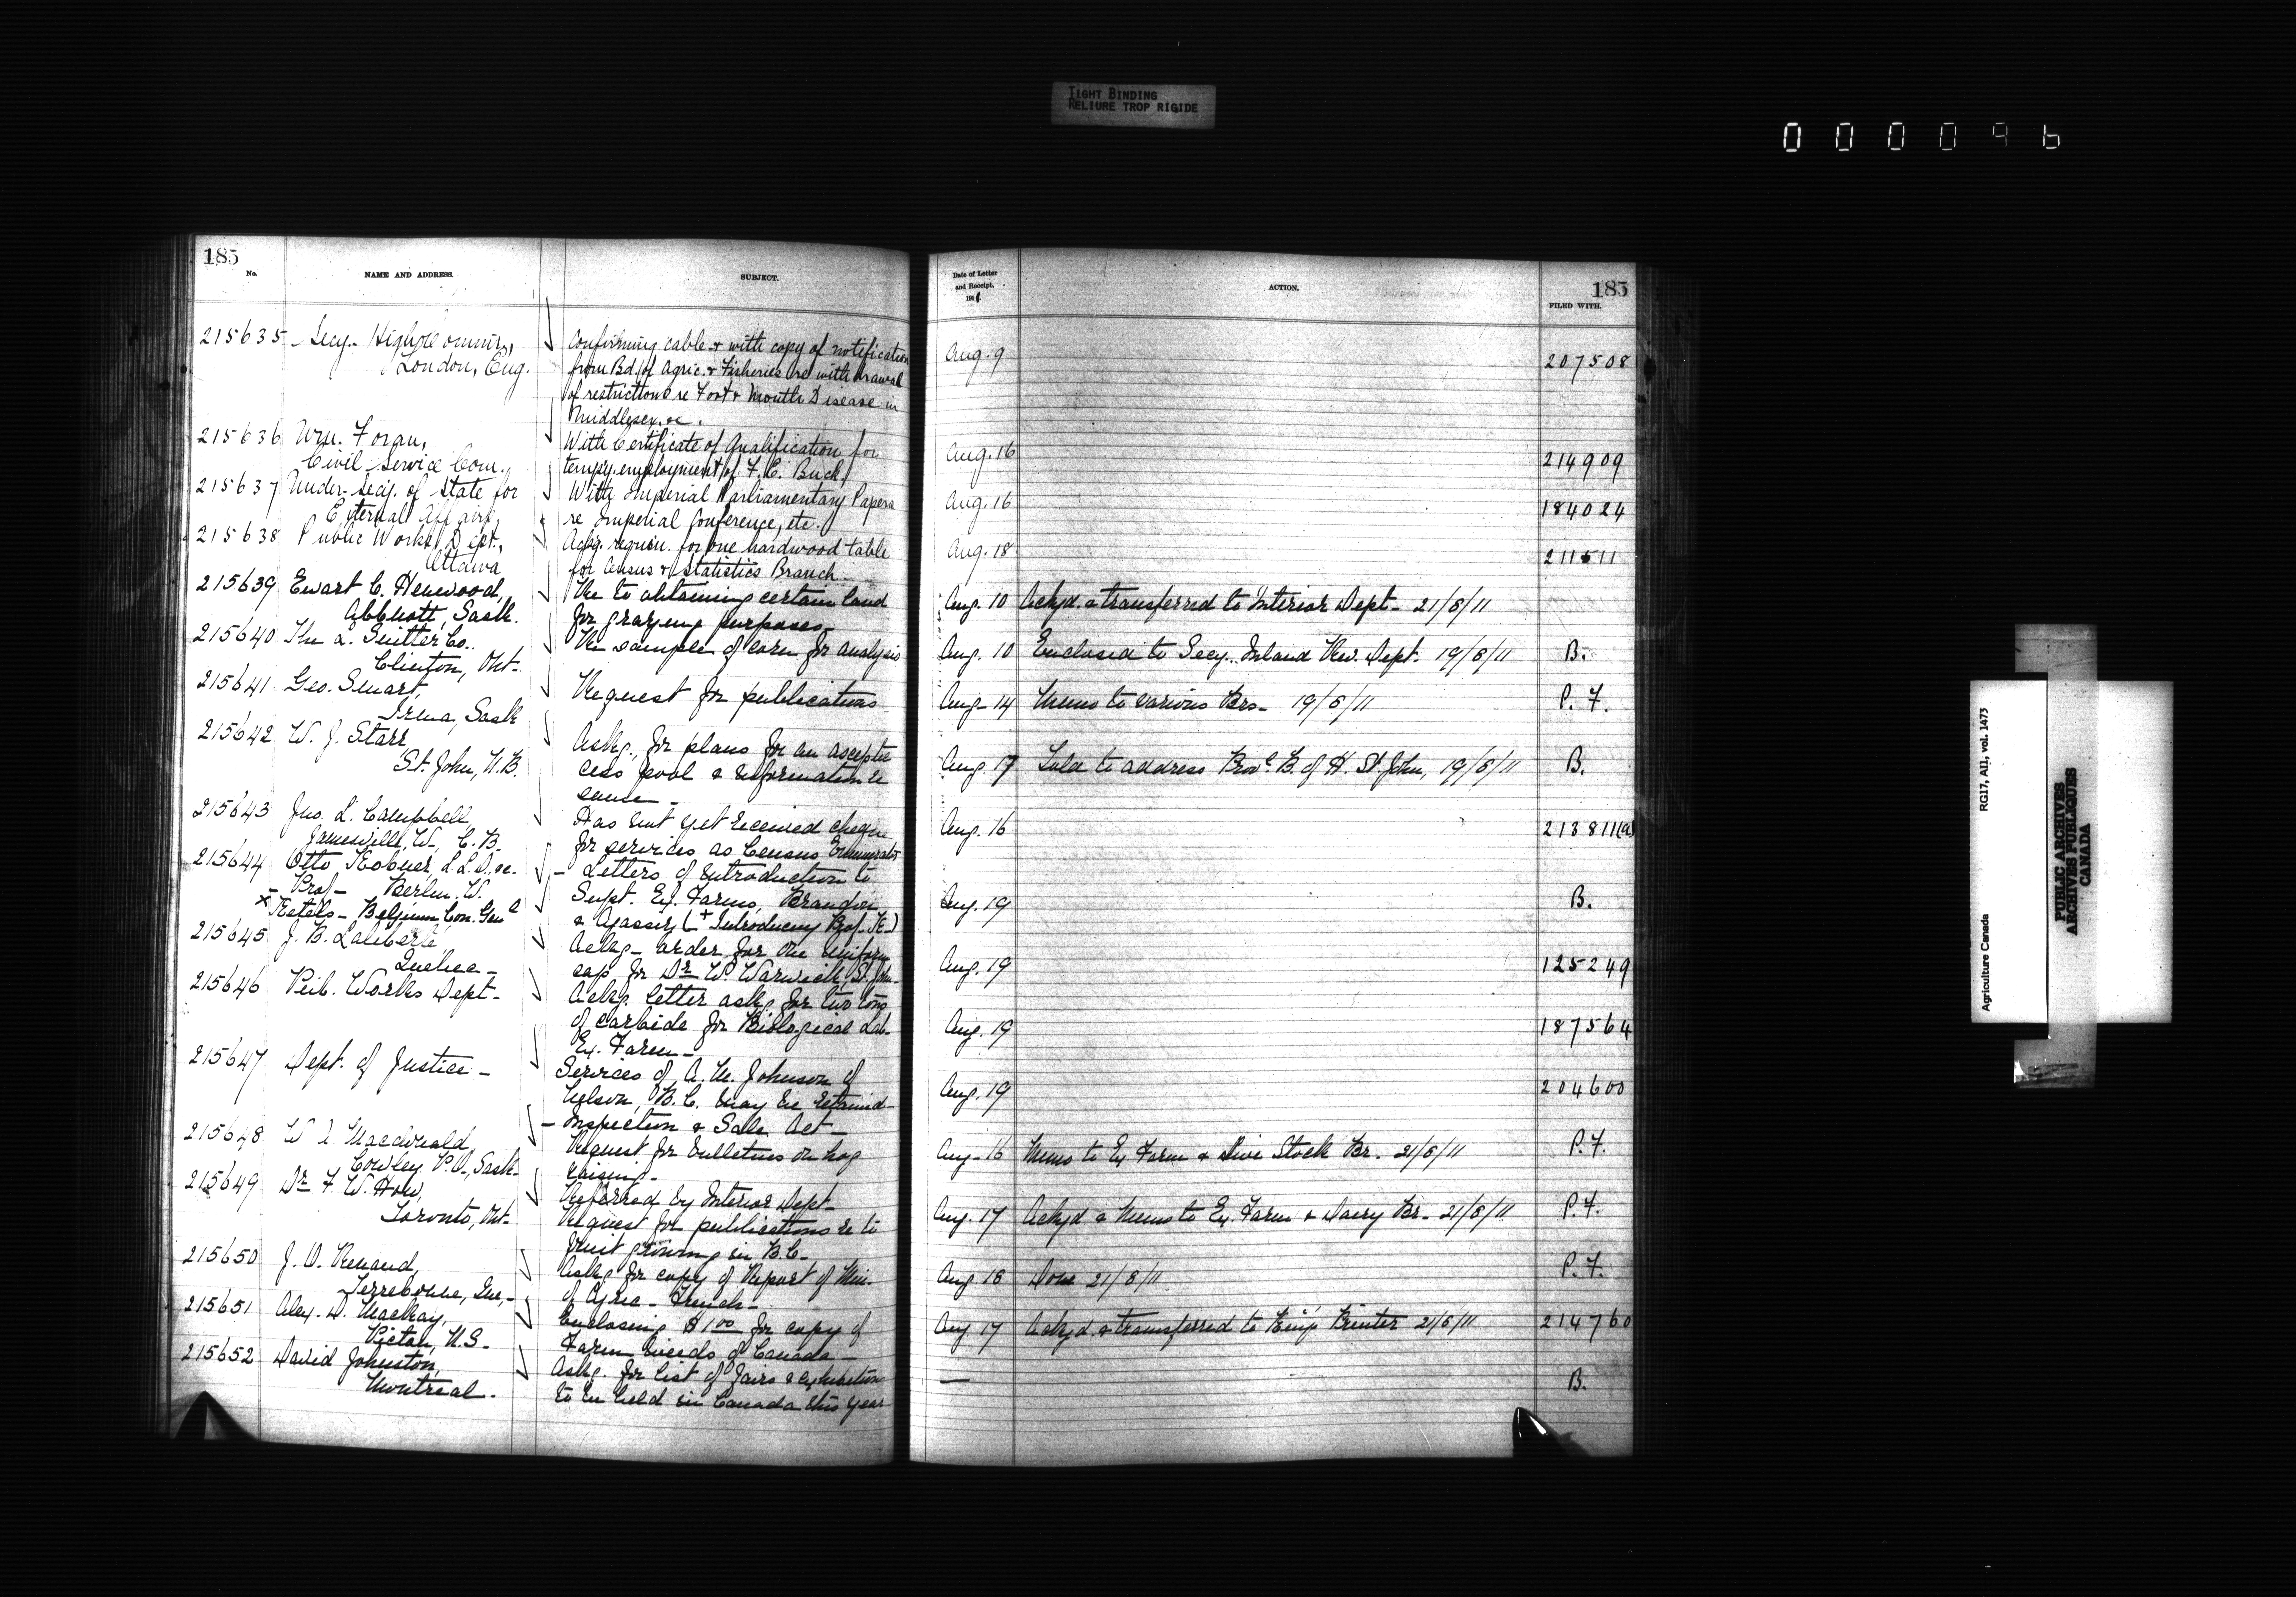 TIGHT BINDING
RELIURE TROP RIGIDE
000096
185
No.
NAME AND ADDRESS.
SUBJECT.
215635 Secy. High Commr,
London, Eng.
Confirming cable & with copy of notification
from Bd. of Agric. & Fisheries re withdrawal
of restrictions re Foot & Mouth Disease in
Middlesex, &c.
215636 Wm. Foran,
Civil Service Com.
With Certificate of Qualification for
tempy. employment of F. E. Buck
215637 Under-Secy. of State for
External Affairs
With Imperial Parliamentary Papers
re Imperial Conference, etc.
215638 Public Works Dept.,
Ottawa
Ackg. requisn. for one hardwood table
for Census & Statistics Branch
215639 Ewart C. Henwood,
Abbott, Sask.
Re to obtaining certain land
for grazing purposes
215640 The Co.
Clinton, Ont.
Re sample of corn for analysis
215641 Geo. Stuart,
Sask
Request for publications
215642 W. J. Starr
St. John, N.B.
Askg. for plans for an asceptic
cess pool & information re
same
215643 Jno. L. Campbell,
Jamesville, W., C.B.
Has not yet received cheque
for services as Census Enumerator
215644 Otto Kobner, L.L.D. &c.
Prof- Berlin, W.
x Ketels - Belgium Con. Genl
- Letters of introduction to
Supt. Ex. Farms, Brandon
& Agassiz (+ Introducing Prof. K.)
215645 J. B. Laliberté,
Quebec -
Ackg - order for one uniform
cap for Dr W. Warwick, St. John.
215646 Pub. Works Dept.
Ackg. letter askg for two tons
of carbide for Biological Lab.
Ex. Farm -
215647 Dept. of Justice -
Services of A. M. Johnson of
Nelson, B.C. may be retained -
- Inspection & Sale Act -
215648 W. Macdonald
Cowley P.O., Sask.
Request for bulletins on hog
raising -
215649 Dr F. W. How,
Toronto, Ont.
Referred by Interior Dept
Request for publications re to
fruit growing in B.C.
215650 J. O. Renaud,
Terrebonne, Que.,
Askg for copy of Report of Min.
of Agric - French -
215651 Alex. D. MacKay,
Pictou, N.S.
Enclosing $1.00 for copy of
Farm Weeds of Canada
215652 David Johnston,
Montreal.
Askg. for list of fairs & exhibitions
to be held in Canada this year
Date of Letter
and Receipt,
1911
ACTION.
185
FILED WITH.
Aug. 9 207508
Aug. 16 214909
Aug. 16 184024
Aug. 18 211511
Aug. 10 Ackgd. & transferred to Interior Dept - 21/8/11
Aug. 10 Enclosed to Secy. Inland Rev. Dept. 19/8/11 B.
Aug - 14 Memo to various Brs - 19/8/11 P. F.
Aug. 17 Told to address Provl B. of H. St. John, 19/8/11 B.
Aug. 16 213811(a)
Aug. 19 B.
Aug. 19 125249
Aug. 19 187564
Aug. 19 204600
Aug - 16 Memo to Ex Farm & Live Stock Br. 21/8/11 P. F.
Aug. 17 Ackgd & Memo to Ex. Farm & Dairy Br - 21/8/11 P. F.
Aug 18 Done 21/8/11 P. F.
Aug 17 Ackgd. & transferred to King's Printer 21/8/11 214760
— B.
Agriculture Canada RG17, AII, vol. 1473
PUBLIC ARCHIVES
ARCHIVES PUBLIQUES
CANADA